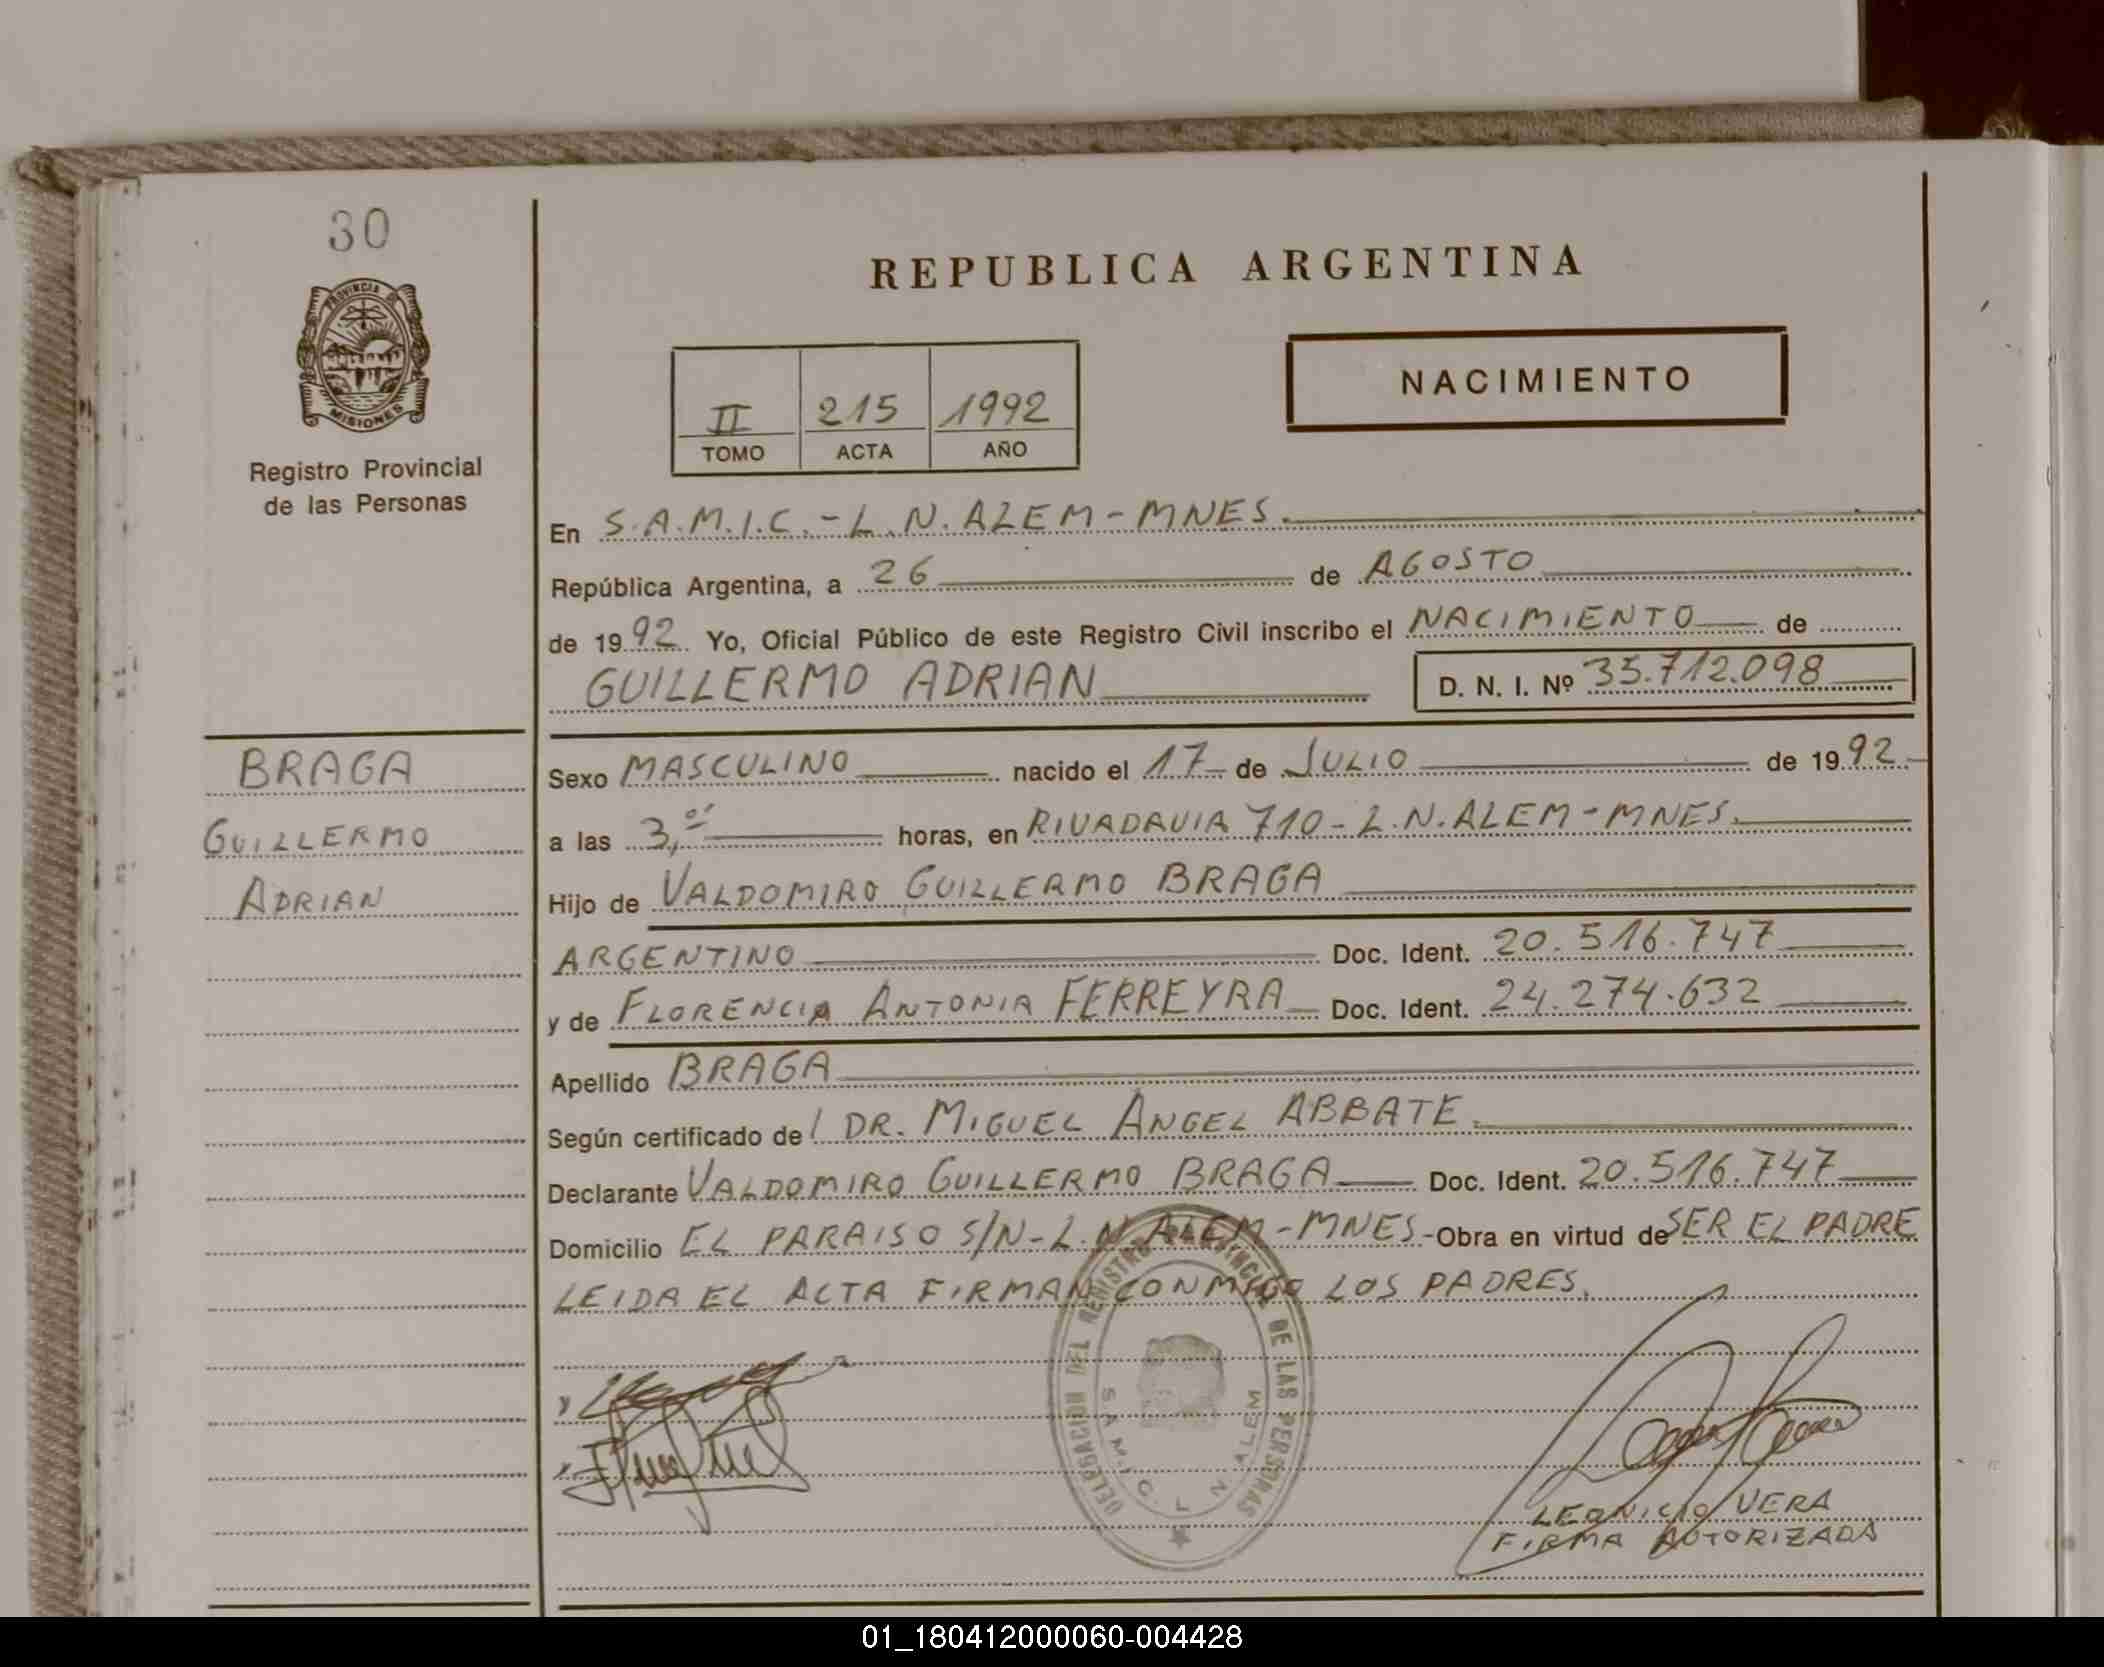 30
PROVINCIA DE
MISIONES
Registro Provincial
de las Personas
REPUBLICA ARGENTINA
II 215 1992
TOMO ACTA AÑO
NACIMIENTO
En S.A.M.I.C.-L.N.ALEM-MNES.
República Argentina, a 26 de AGOSTO
de 1992 Yo, Oficial Público de este Registro Civil inscribo el NACIMIENTO de
GUILLERMO ADRIAN D. N. I. Nº 35.712.098
BRAGA
GUILLERMO
ADRIAN
Sexo MASCULINO nacido el 17 de JULIO de 1992
a las 3, horas, en RIVADAVIA 710-L.N.ALEM-MNES.
Hijo de VALDOMIRO GUILLERMO BRAGA
ARGENTINO Doc. Ident. 20.516.747
y de FLORENCIA ANTONIA FERREYRA Doc. Ident. 24.274.632
Apellido BRAGA
Según certificado del DR. MIGUEL ANGEL ABBATE.
Declarante VALDOMIRO GUILLERMO BRAGA Doc. Ident. 20.516.747
Domicilio EL PARAISO S/N-L.N.ALEM-MNES-Obra en virtud de SER EL PADRE
LEIDA EL ACTA FIRMAN CONMIGO LOS PADRES.
DELEGACION DEL REGISTRO PROVINCIAL DE LAS PERSONAS
S.A.M.I.C. L. N. ALEM
LEONICIO VERA
FIRMA AUTORIZADA
01_180412000060-004428